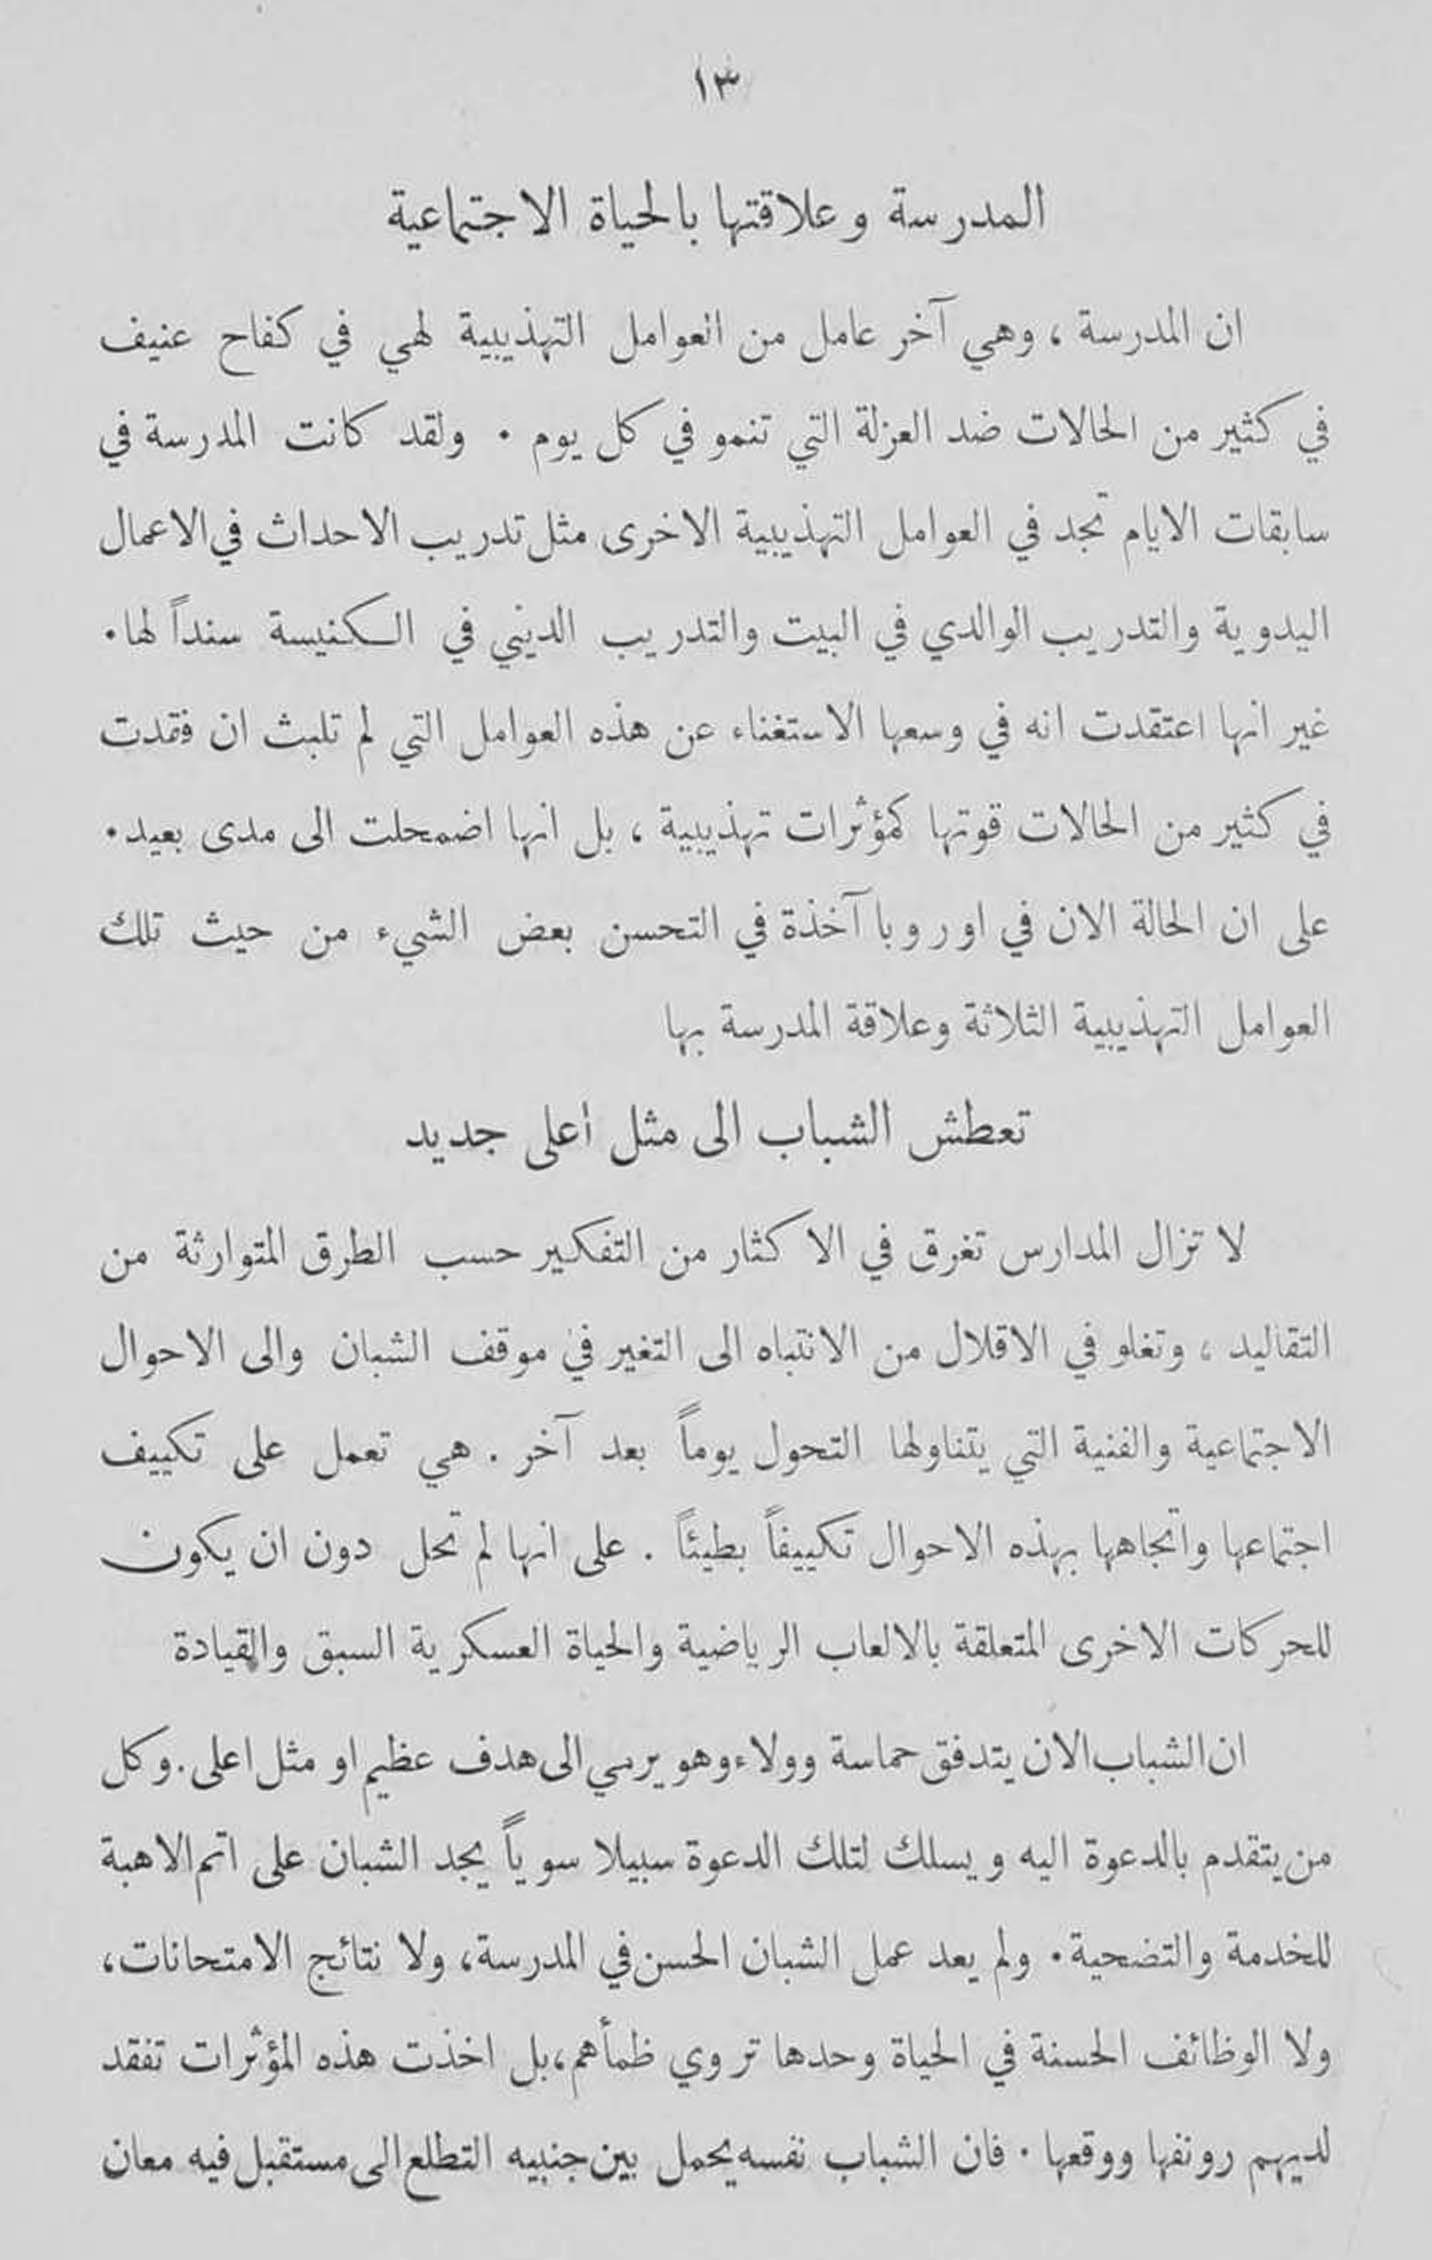 ١٣
المدرسة وعلاقتها بالحياة الاجتماعية
ان المدرسة ، وهي آخر عامل من العوامل التهذيبية لهي في كفاح عنيف
في كثير من الحالات ضد العزلة التي تنمو في كل يوم . ولقد كانت المدرسة في
سابقات الايام تجد في العوامل التهذيبية الاخرى مثل تدريب الاحداث في الاعمال
اليدوية والتدريب الوالدي في البيت والتدريب الديني في الكنيسة سنداً لها .
غير انها اعتقدت انه في وسعها الاستغناء عن هذه العوامل التي لم تلبث ان فقدت
في كثير من الحالات قوتها كمؤثرات تهذيبية ، بل انها اضمحلت الى مدى بعيد .
على ان الحالة الان في اوروبا آخذة في التحسن بعض الشيء من حيث تلك
العوامل التهذيبية الثلاثة وعلاقة المدرسة بها
تعطش الشباب الى مثل أعلى جديد
لا تزال المدارس تغرق في الاكثار من التفكير حسب الطرق المتوارثة من
التقاليد ، وتغلو في الاقلال من الانتباه الى التغير في موقف الشبان والى الاحوال
الاجتماعية والفنية التي يتناولها التحول يوماً بعد آخر . هي تعمل على تكييف
اجتماعها واتجاهها بهذه الاحوال تكييفاً بطيئاً . على انها لم تحل دون ان يكون
للحركات الاخرى المتعلقة بالالعاب الرياضية والحياة العسكرية السبق والقيادة
ان الشباب الان يتدفق حماسة وولاء وهو يرمي الى هدف عظيم او مثل اعلى . وكل
من يتقدم بالدعوة اليه ويسلك لتلك الدعوة سبيلا سوياً يجد الشبان على اتم الاهبة
للخدمة والتضحية . ولم يعد عمل الشبان الحسن في المدرسة، ولا نتائج الامتحانات،
ولا الوظائف الحسنة في الحياة وحدها تروي ظمأهم، بل اخذت هذه المؤثرات تفقد
لديهم رونقها ووقعها . فان الشباب نفسه يحمل بين جنبيه التطلع الى مستقبل فيه معان